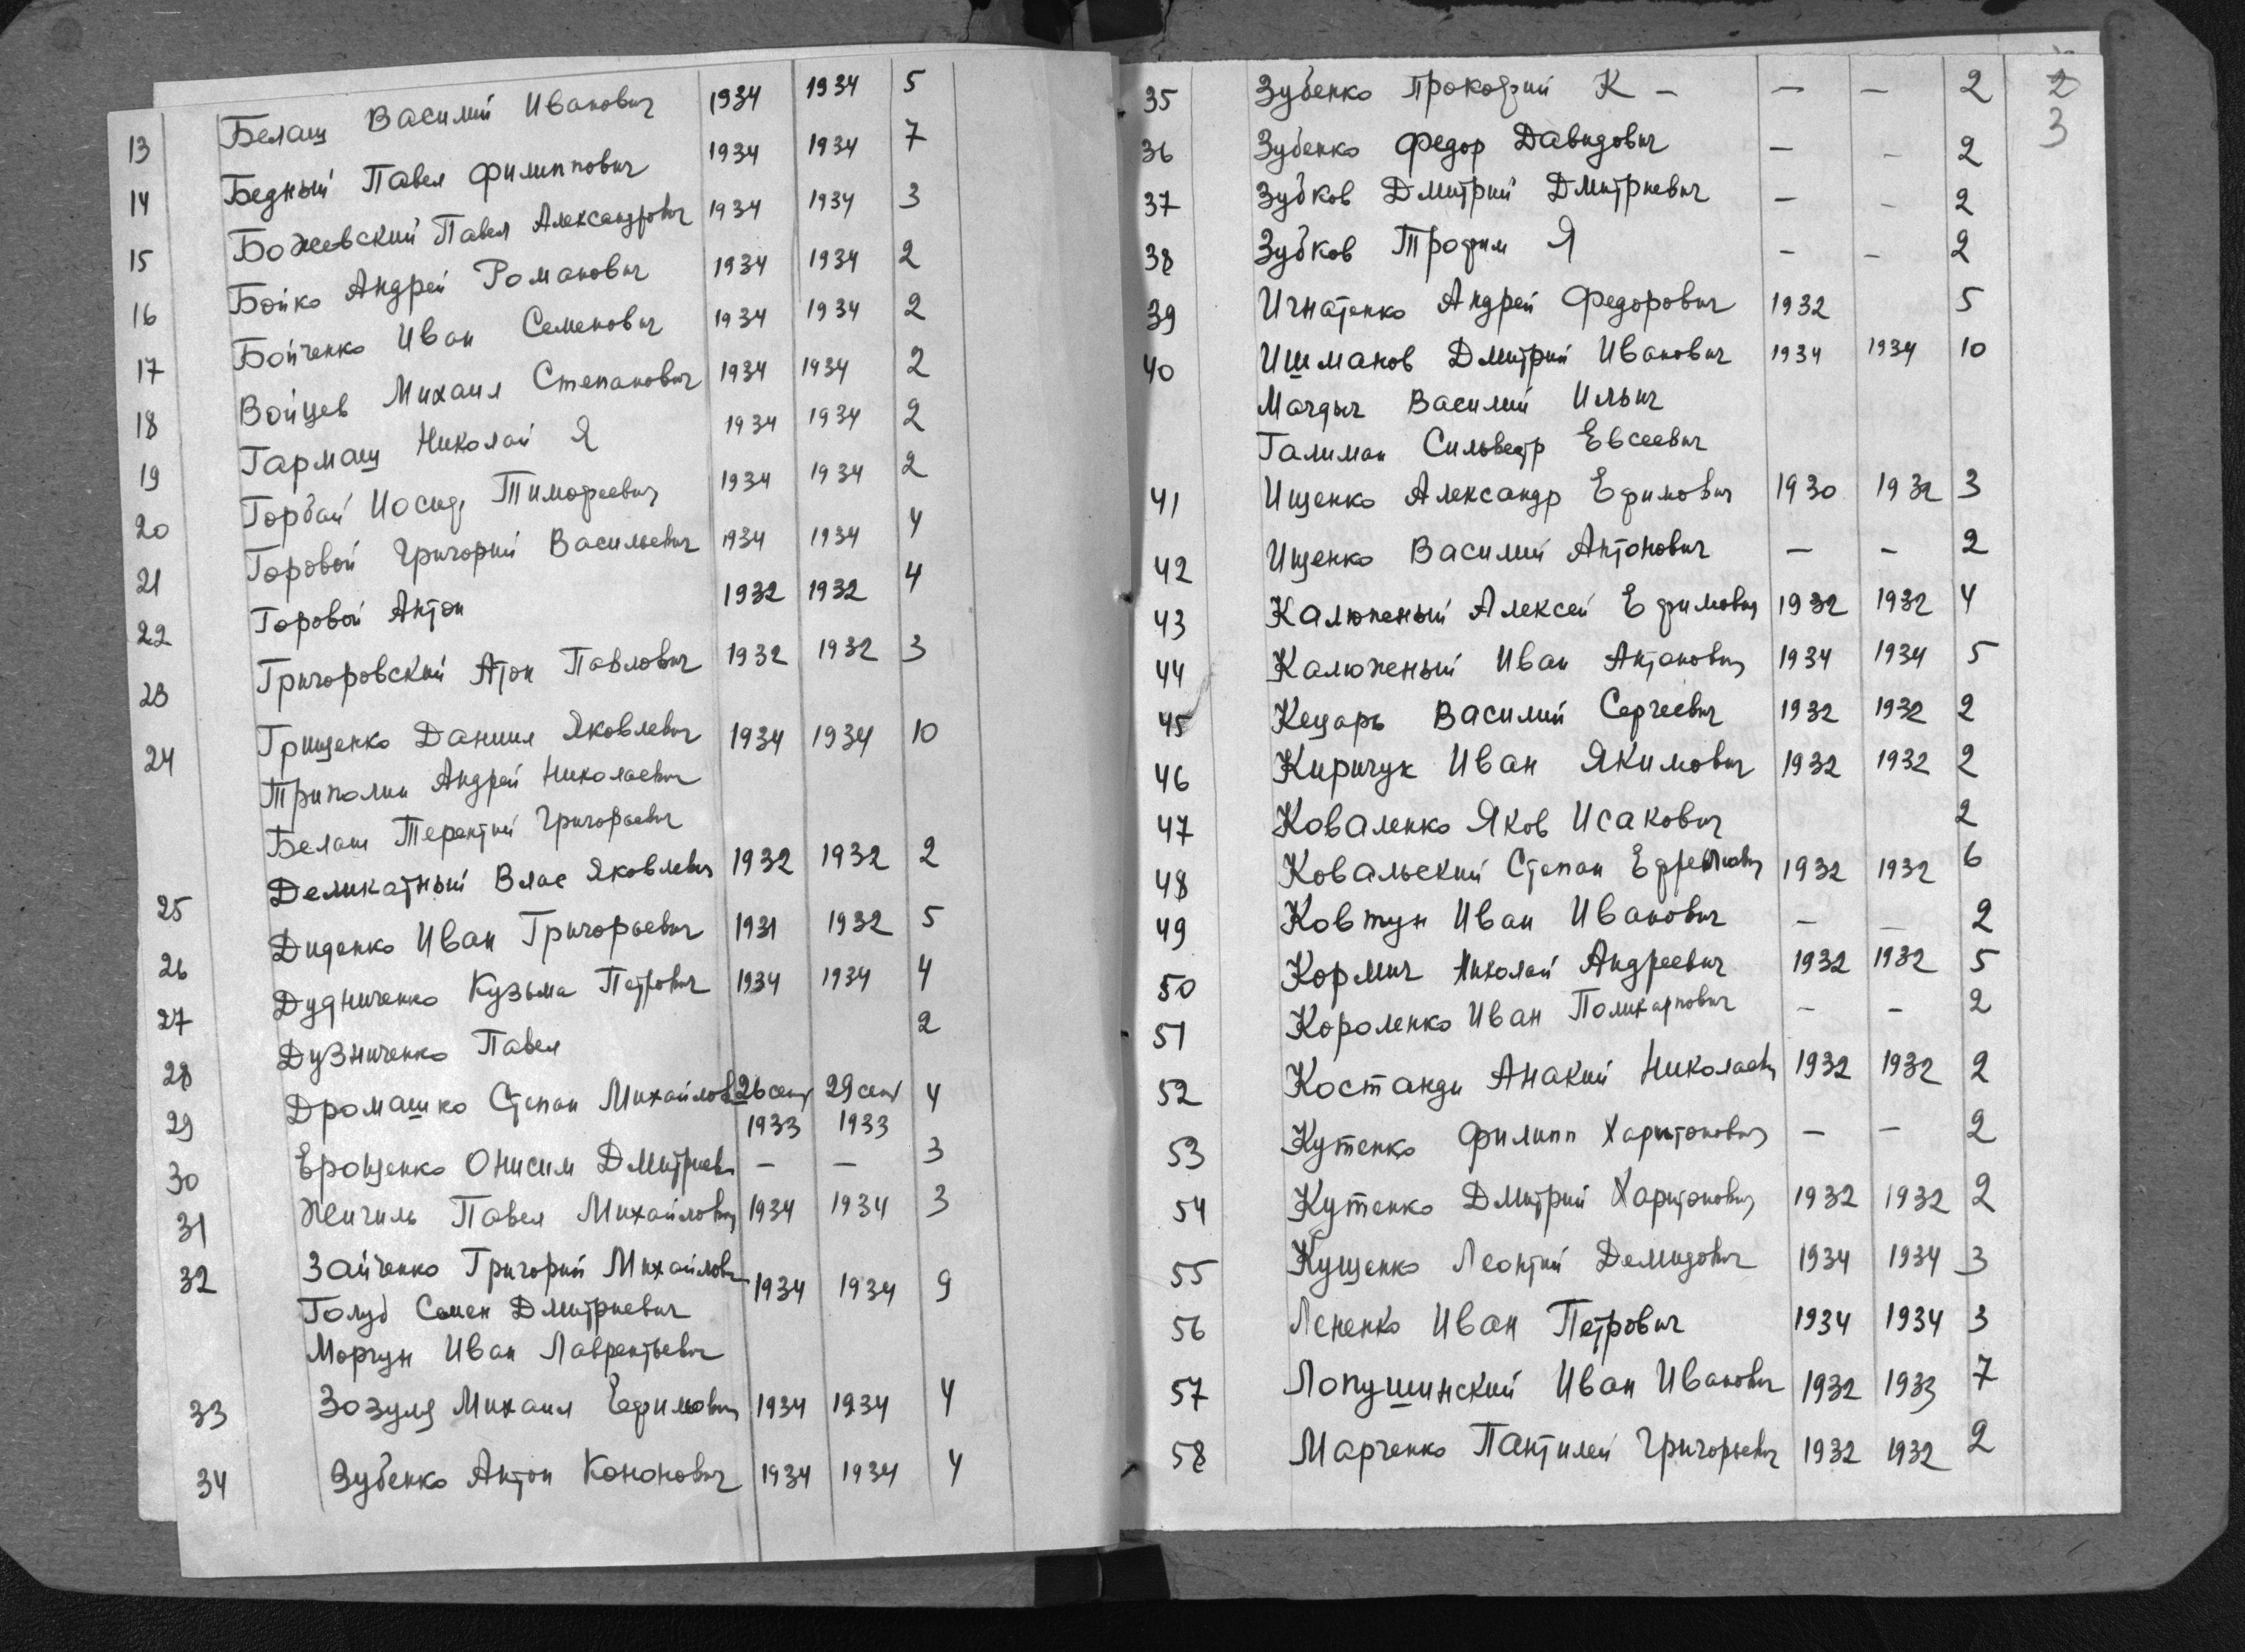 13 Белаш Василий Иванович 1934 1934 5
14 Бедный Павел Филиппович 1934 1934 7
15 Божевский Павел Александрович 1934 1934 3
16 Бойко Андрей Романович 1934 1934 2
17 Бойченко Иван Семенович 1934 1934 2
18 Войцев Михаил Степанович 1934 1934 2
19 Гармаш Николай Я 1934 1934 2
20 Горбай Иосиф Тимофеевич 1934 1934 2
21 Горовой Григорий Васильевич 1934 1934 4
22 Горовой Антон 1932 1932 4
23 Григоровский Атон Павлович 1932 1932 3
24 Грищенко Даниил Яковлевич 1934 1934 10
Триполин Андрей Николаевич
Белаш Терентий Григорьевич
25 Деликатный Влас Яковлевич 1932 1932 2
26 Диденко Иван Григорьевич 1931 1932 5
27 Дудниченко Кузьма Петрович 1934 1934 4
28 Дузниченко Павел 2
29 Дромашко Степан Михайлов 26 сент 29 сент 4
1933 1933
30 Ерощенко Онисим Дмитриев — — 3
31 Жигиль Павел Михайлович 1934 1934 3
32 Зайченко Григорий Михайлович 1934 1934 9
Голуб Семен Дмитриевич
Моргун Иван Лаврентьевич
33 Зозуля Михаил Ефимович 1934 1934 4
34 Зубенко Антон Кононович 1934 1934 4
35 Зубенко Прокофий К — — — 2 2
3
36 Зубенко Федор Давидович — — 2
37 Зубков Дмитрий Дмитриевич — — 2
38 Зубков Трофим Я — — 2
39 Игнатенко Андрей Федорович 1932 5
40 Ишманов Дмитрий Иванович 1934 1934 10
Магдыч Василий Ильич
Галиман Сильвестр Евсеевич
41 Ищенко Александр Ефимович 1930 1932 3
42 Ищенко Василий Антонович — — 2
43 Калюжный Алексей Ефимович 1932 1932 4
44 Калюженый Иван Антонович 1934 1934 5
45 Кецарь Василий Сергеевич 1932 1932 2
46 Киричук Иван Якимович 1932 1932 2
47 Коваленко Яков Исакович 2
48 Ковальский Степан Ефремович 1932 1932 6
49 Ковтун Иван Иванович — — 2
50 Кормич Николай Андреевич 1932 1932 5
51 Короленко Иван Поликарпович — — 2
52 Костанди Анакий Николаевич 1932 1932 2
53 Кутенко Филипп Харитонович — — 2
54 Кутенко Дмитрий Харитонович 1932 1932 2
55 Кущенко Леонтий Демидович 1934 1934 3
56 Лененко Иван Петрович 1934 1934 3
57 Лопушинский Иван Иванович 1932 1933 7
58 Марченко Пантилей Григорьевич 1932 1932 2